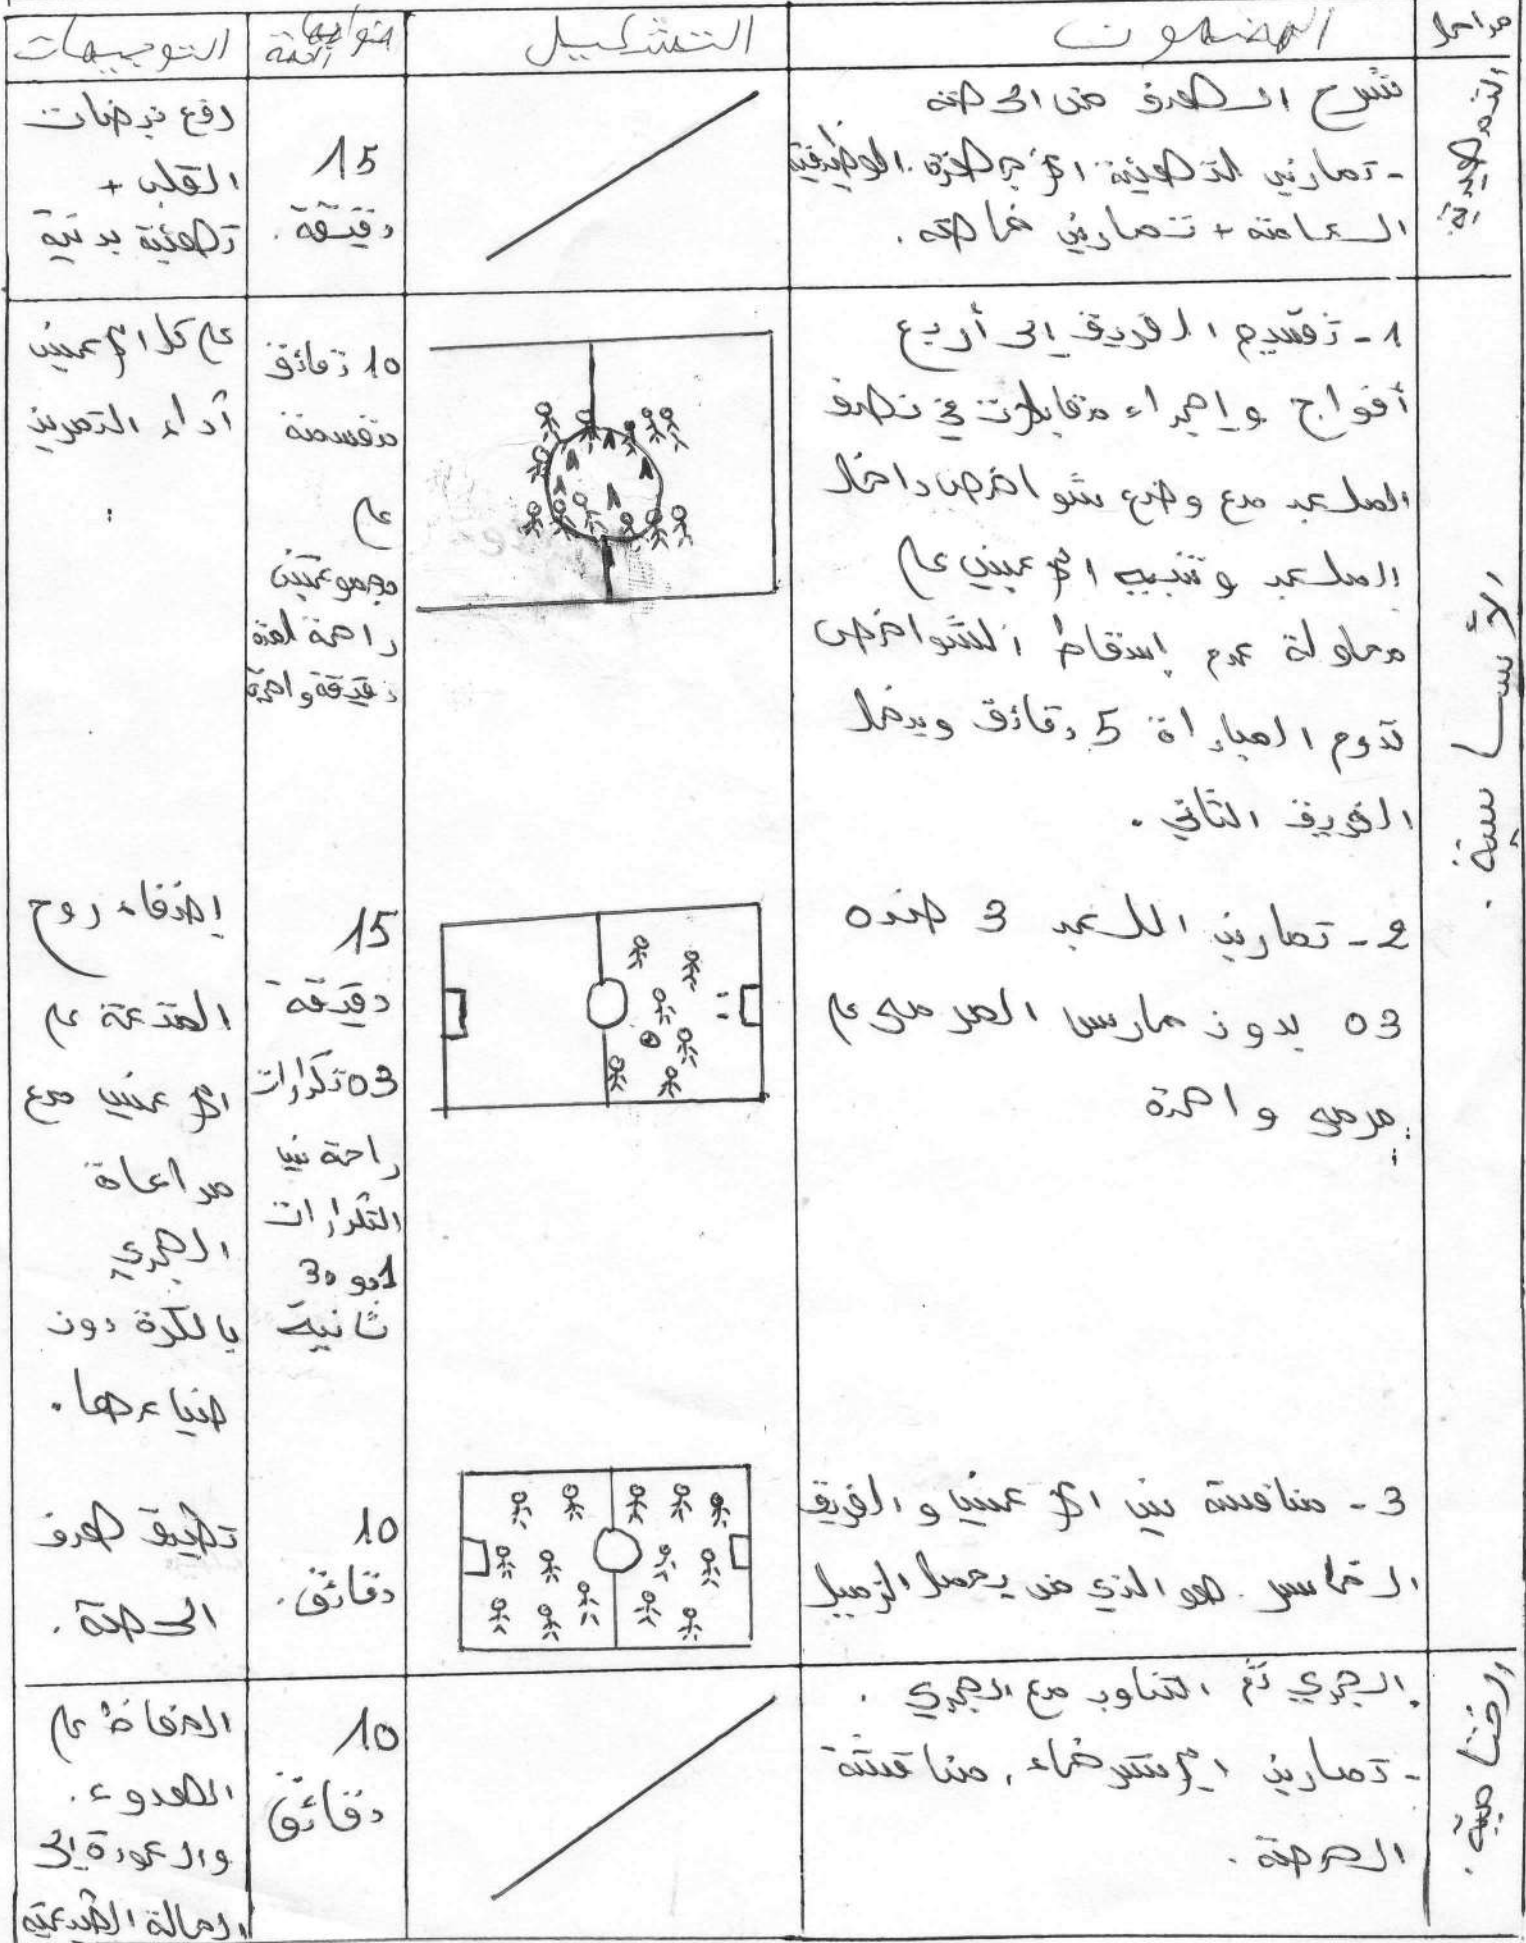 مراحل
المضمون
التشكيل
التوجيهات
التمهيدية
شرح الهدف من الحصة
- تمارين لتهيئة الأجهزة الوظيفية
العامة + تمارين خاصة.
15
دقيقة.
رفع نبضات
القلب +
تهيئة بدنية
الأساسية.
1- تقسيم الفريق إلى أربع
أفواج وإجراء مقابلات في نصف
الملعب مع وضع شواخص داخل
الملعب وتنبيه اللاعبين على
محاولة عدم إسقاط الشواخص
تدوم المباراة 5 دقائق ويدخل
الفريق الثاني.
10 دقائق
مقسمة
على
مجموعتين
راحة لمدة
دقيقة واحدة
على كل اللاعبين
أداء التمرين
2- تمارين اللعب 3 ضد
03 بدون حارس المرمى على
مرمى واحدة
15
دقيقة
03 تكرارات
راحة بين
التكرارات
1د و 30
ثانية
إضفاء روح
المتعة على
اللاعبين مع
مراعاة
الجري
بالكرة دون
ضياعها.
3- منافسة بين اللاعبين والفريق
الخاسر هو الذي من يحمل الزميل
10
دقائق.
تطبيق هدف
الحصة.
الختامية.
الجري ثم التناوب مع الجري.
- تمارين الاسترخاء، مناقشة
الحصة.
10
دقائق
الحفاظ على
الهدوء.
والعودة إلى
الحالة الطبيعية